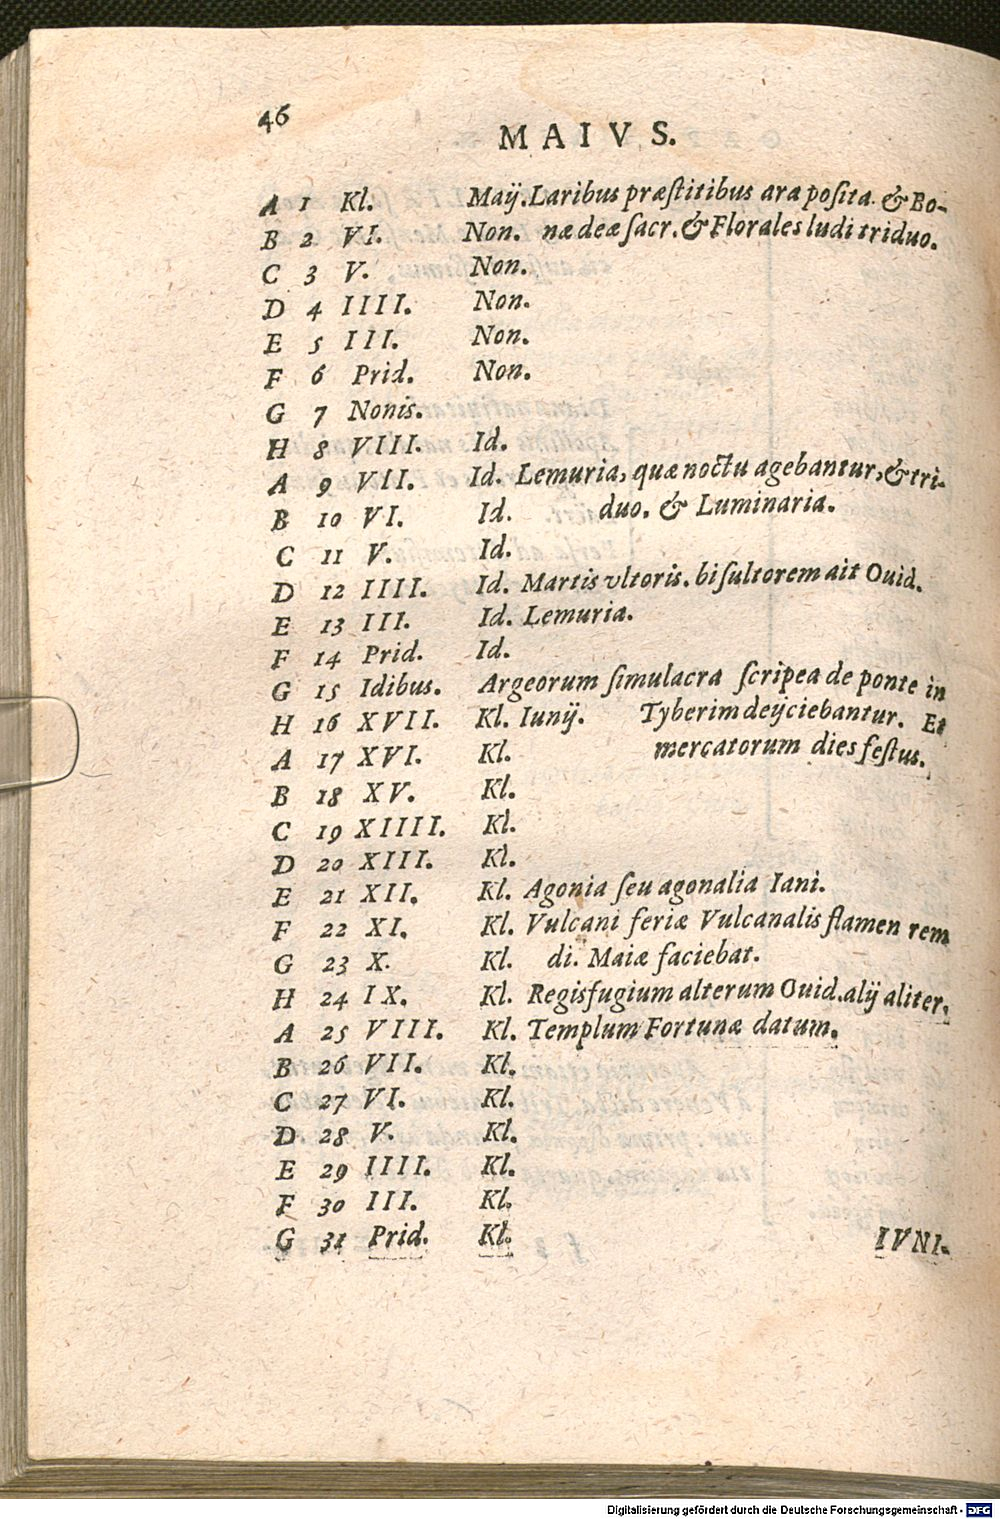 46
MAIVS.
A 1 Kl. Maij. Laribus præſtitibus ara poſita. & Bo-
B 2 VI. Non. næ deæ ſacr. & Florales ludi triduo.
C 3 V. Non.
D 4 IIII. Non.
E 5 III. Non.
F 6 Prid. Non.
G 7 Nonis.
H 8 VIII. Id.
A 9 VII. Id. Lemuria, quæ noctu agebantur, & tri-
B 10 VI. Id. duo. & Luminaria.
C 11 V. Id.
D 12 IIII. Id. Martis vltoris. biſultorem ait Ouid.
E 13 III. Id. Lemuria.
F 14 Prid. Id.
G 15 Idibus. Argeorum ſimulacra ſcripea de ponte in
H 16 XVII. Kl. Iunij. Tyberim deijciebantur. Et
A 17 XVI. Kl. mercatorum dies feſtus.
B 18 XV. Kl.
C 19 XIIII. Kl.
D 20 XIII. Kl.
E 21 XII. Kl. Agonia ſeu agonalia Iani.
F 22 XI. Kl. Vulcani feriæ Vulcanalis flamen rem
G 23 X. Kl. di. Maiæ faciebat.
H 24 IX. Kl. Regisfugium alterum Ouid. alij aliter.
A 25 VIII. Kl. Templum Fortunæ datum.
B 26 VII. Kl.
C 27 VI. Kl.
D 28 V. Kl.
E 29 IIII. Kl.
F 30 III. Kl.
G 31 Prid. Kl. IVNI-
Digitalisierung gefördert durch die Deutsche Forschungsgemeinschaft - DFG